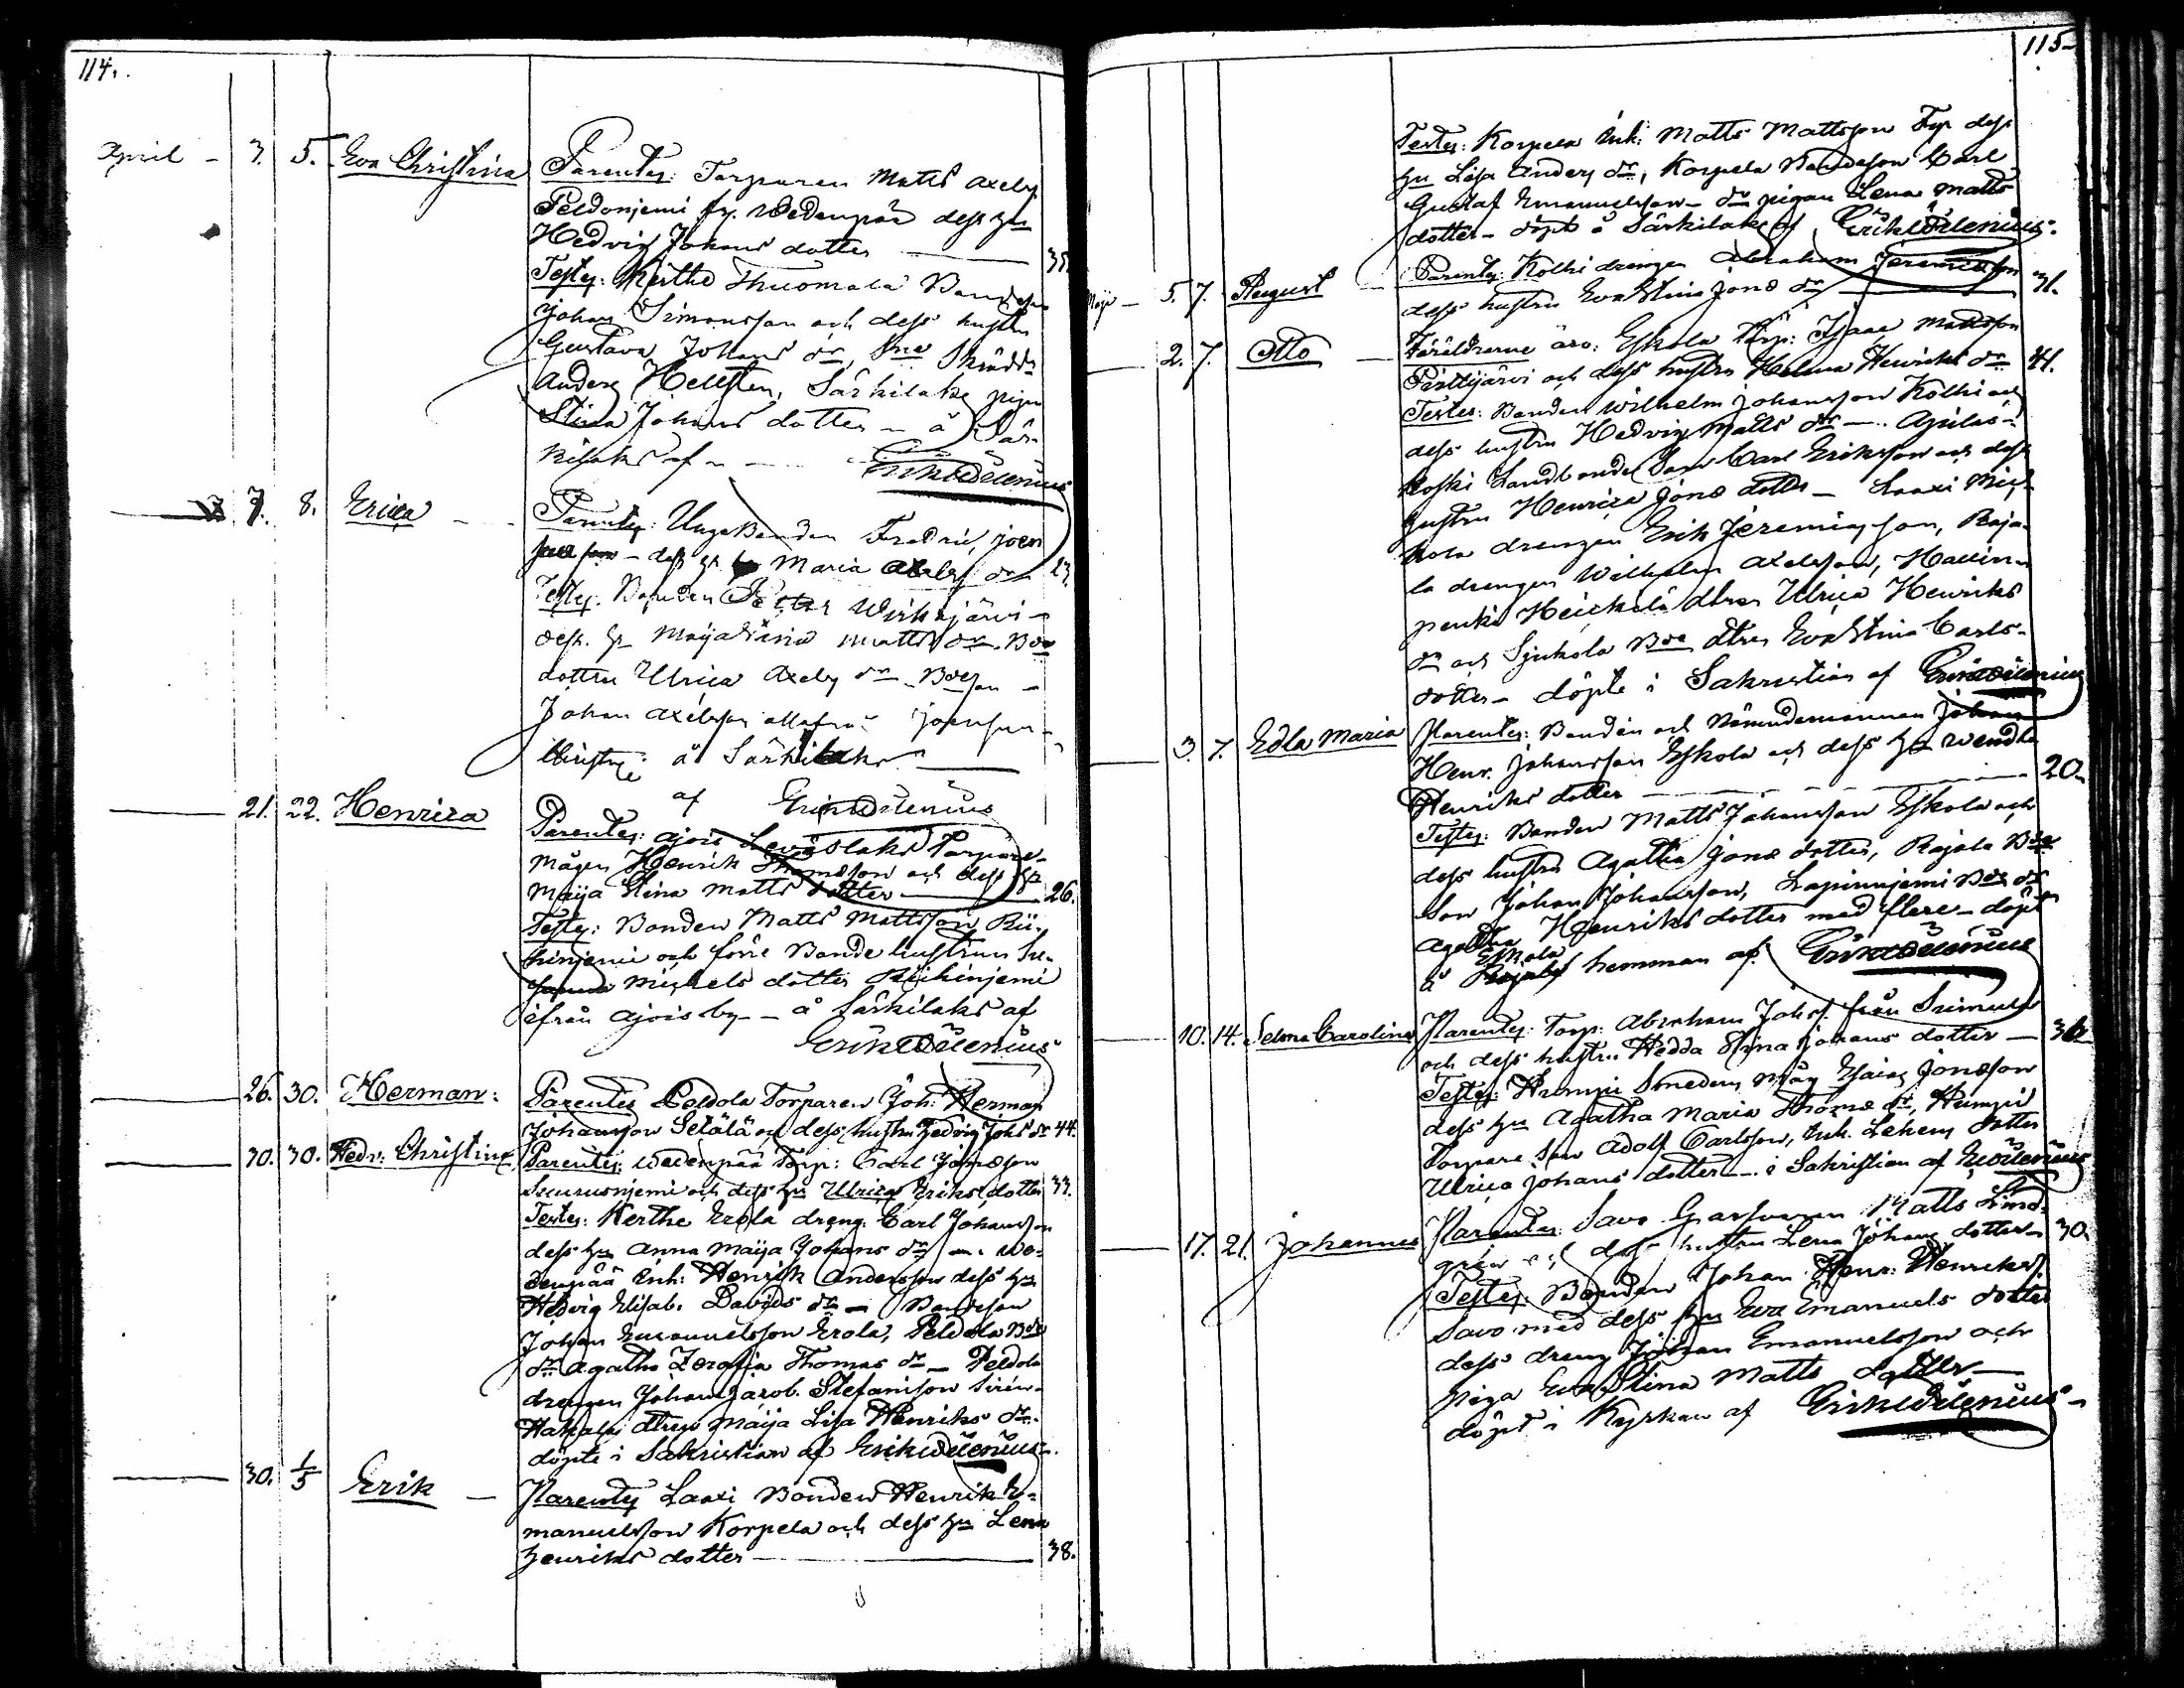 114.
April - 3. 5. Eva Christina Parentes: Torparen Matts Axelss.
Peldonjemi fr. Wedenpää dess hu
Hedvig Johans dotter — 35.
Testes: Kerthe Thuomala Bondeson
Johan Simonsson och dess hustru
Gustava Johans dr,
Anders Hellsten, Särkilaks pigan
Stina Johans dotter - å Sär-
kilaks af - Erik Widenius
7. 8. Erica - Parentes: Unga Bonden Fredric Joen
- dess hu Maria Axels dr 23.
Testes: Bonden Petter Wirkajärvi -
dess hu Maija Stina Matts dr. Bde
dottren Ulrica Axels dr - Bdeson -
Johan Axelsson allafrån Joensuu -
å Särkilaks
af Erik Widenius
21. 22. Henrica Parentes: Ajois Leväslaks Torpare-
mågen Henrik Thomasson och dess hu
Maija Stina Matts dotter — 26.
Testes: Bonden Matts Mattsson Rii-
hinjemi och förre Bonde hustrun Su-
Michels dotter Riihinjemi
ifrån Ajois by - å Särkilaks af
Erik Widenius
26. 30. Herman: Parentes Peldola Torparen Joh: Herman
Johansson Setälä och dess hustru Hedvig Johs dr 44.
30. 30. Hedv: Christina Parentes: Wedenpää Torp: Carl Jonasson
och dess hu Ulrica Eriks dotter 33.
Testes: Kerthe Erola dreng: Carl Johansson
dess hu Anna Maija Johans dr - We-
denpää Inh: Henrik Andersson dess hu
Hedvig Elisab. Davids dr - Bondeson
Johan Emanuelsson Erola, Peldola Bde
dr Agatha Zerafia Thomas dr - Peldola
drengen Johan Jacob Stefansson Sirén-
Hakala dtren Maija Lisa Henriks dr.
döpte i Sakristian af Erik Widenius.
30. 1/5 Erik - Parentes Laaxi Bonden Henrik E-
manuelsson Korpela och dess hu Lena
Henriks dotter — 38.
115
Testes: Korpela Inh: Matts Mattsson Fyr dess
hu Lisa Anders dr, Korpela Bondeson Carl
Gustaf Emanuelsson - pigan Lena Matts
dotter - döpt å Särkilaks af Erik Widenius.
Maji - 5. 7. August - Parentes: Kolhi drengen Abraham Jeremiasson
dess hustru Eva Stina Jons dr — 31.
2. 7. Otto - Föräldrarne äro: Eskola Torp: Isaac Mattsson
Pirttijärvi och dess hustru Helena Henriks dr 41.
Testes: Bonden Wilhelm Johansson Kolhi och
dess hustru Hedvig Matts dr -
koski Landbonde son Carl Eriksson och dess
hustru Henrica Jons dotter - Laaxi Mic-
kola drengen Erik Jeremiasson, Raja-
la drengen Wilhelm Axelsson, Hallin-
penki Heickelä dtren Ulrica Henriks
dr och Sjukola Bde dtren Eva Stina Carls-
dotter - döpte i Sakristian af Erik Widenius
3. 7. Edla Maria Parentes: Bonden och Nämndemannen Johan
Henr. Johansson Eskola och dess hu Wendla
Henriks dotter — 20.
Testes: Bonden Matts Johansson Eskola och
dess hustru Agatha Jons dotter, Rajala Bde
son Johan Johansson, Lapinnjemi Bde dr
Agatha Henriks dotter med flere - döpt
å Eskola hemman af Erik Widenius
10. 14. Selma Carolina Parentes: Torp: Abraham Johss. från
och dess hustru Hedda Stina Johans dotter — 36
Testes: Humpi Smedens måg Esaias Jonasson
dess hu Agatha Maria Thoms dr, Humpi
Torpare son Adolf Carlsson, Inh. Lehens dotter
Ulrica Johans dotter - i Sakristian af E Widenius
17. 21. Johannes Parentes: Savo Garfvaren Matts Lind-
gren och dess hustru Lena Johans dotter - 30.
Testes: Bonden Johan Henr: Henrikss.
Savo med dess hu Eva Emanuels dotter
dess dreng Johan Emanuelsson och
piga Eva Stina Matts dotter -
döpt i Kyrkan af Erik Widenius -